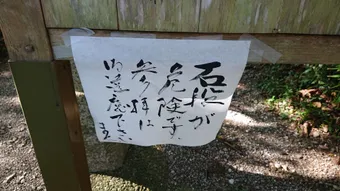 石段が
危険です
参拝は
御遠慮下さい